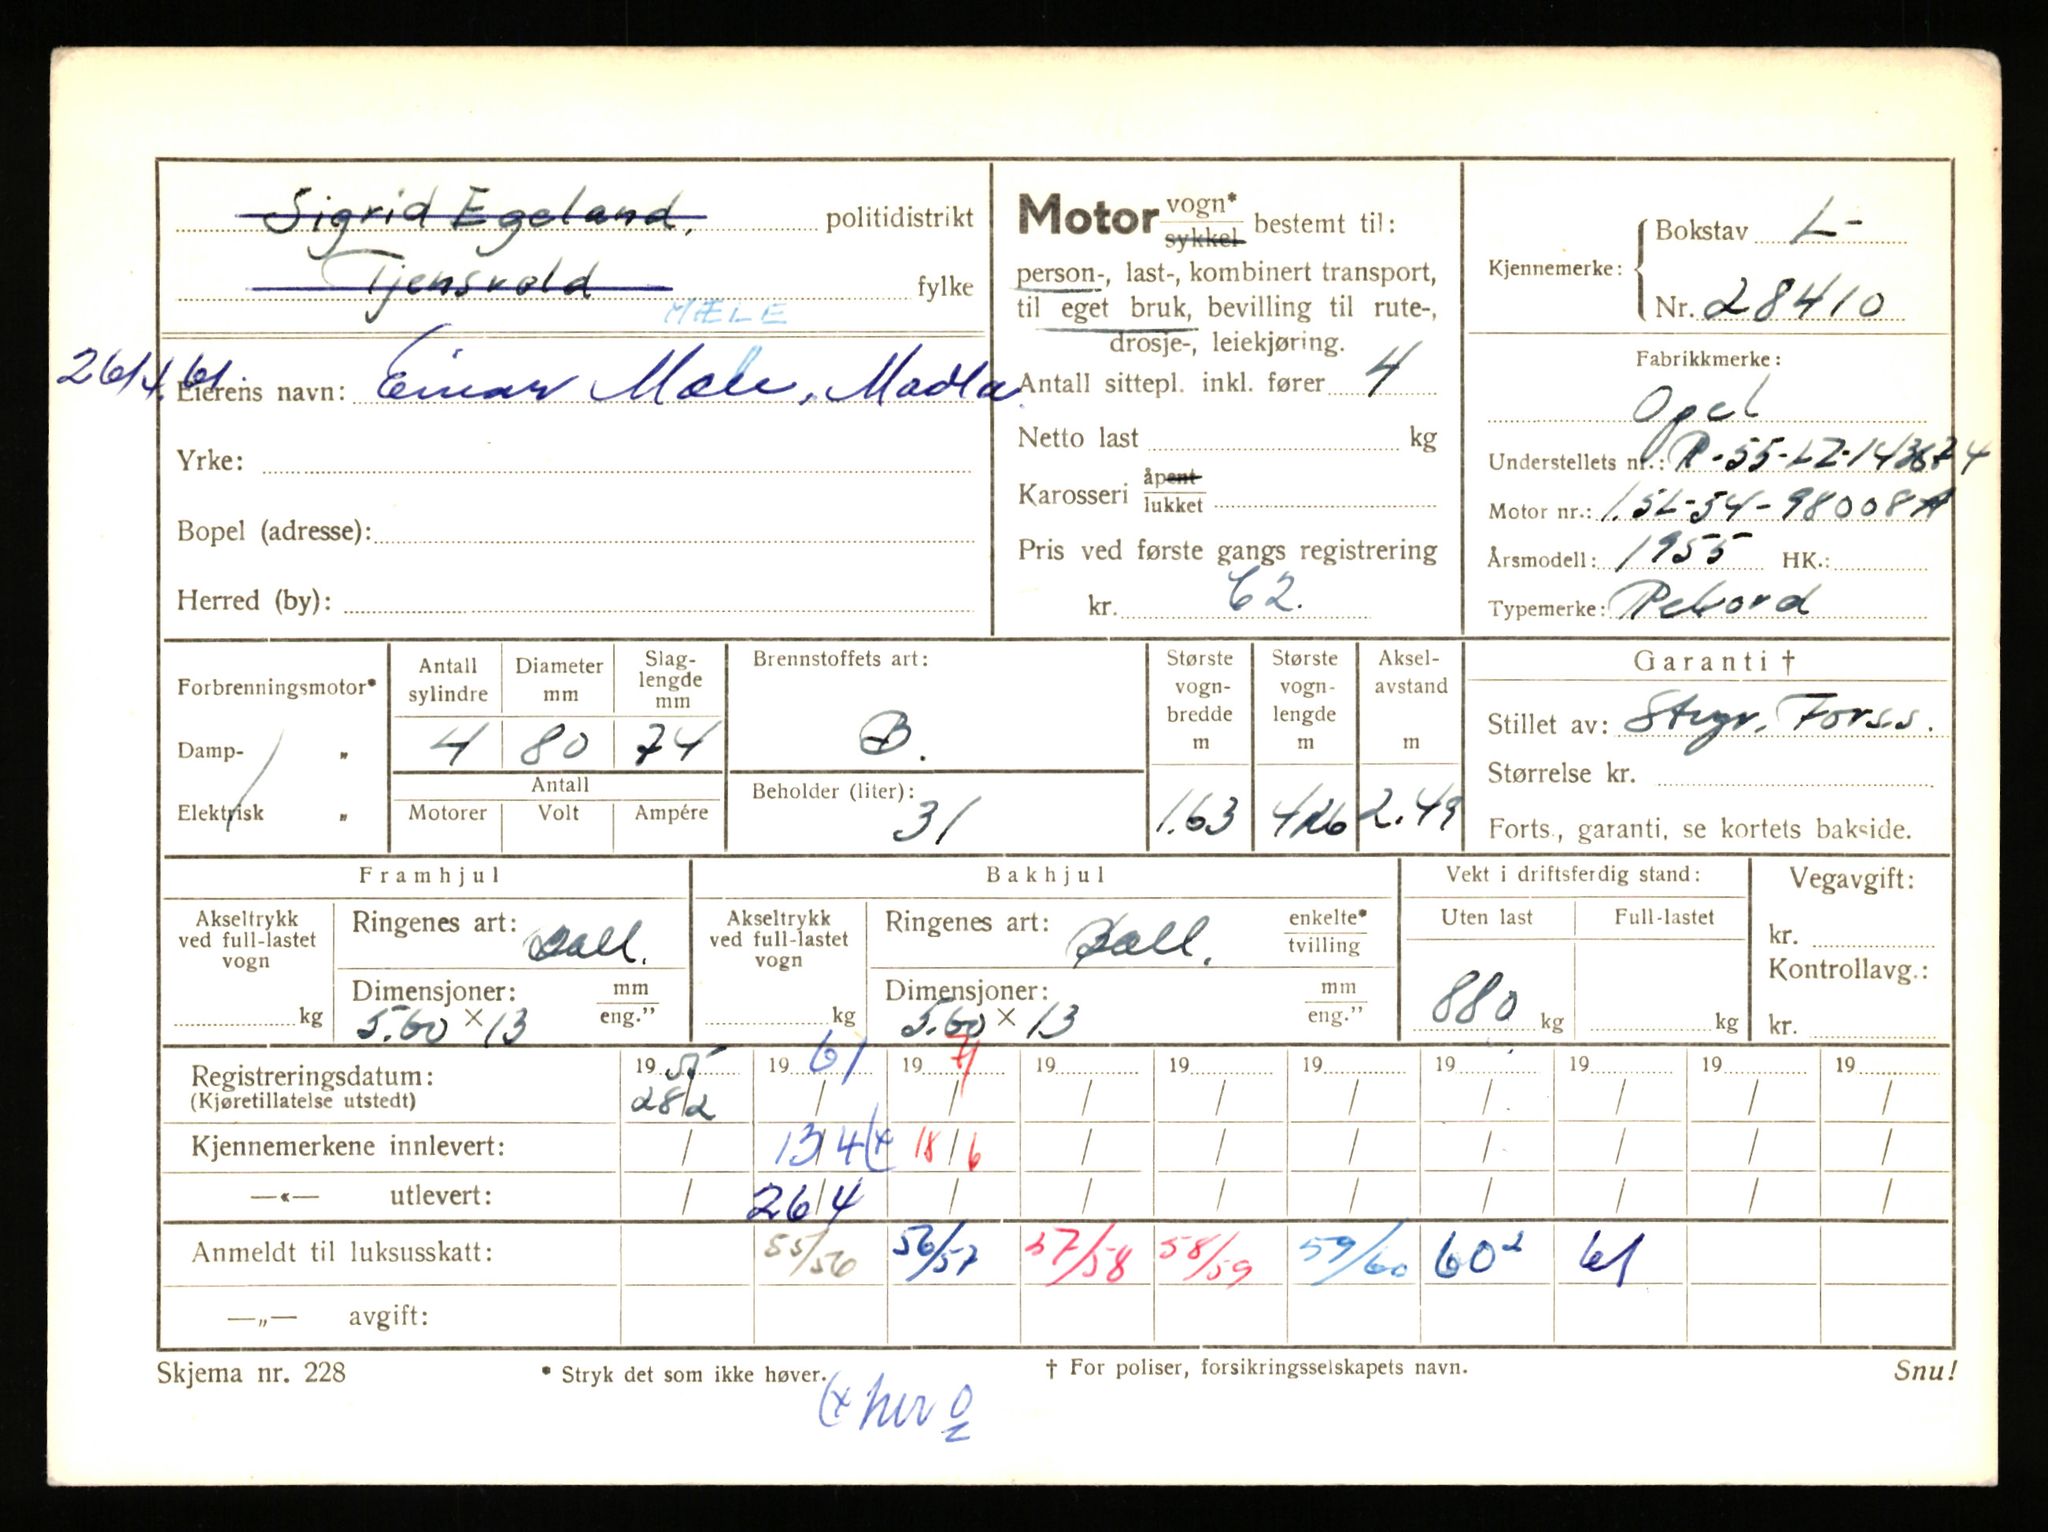 Sigrid Egeland, politidistrikt
Tjensvold fylke
MÆLE
26/4 61 Eierens navn: Einar Mæle, Madla
Yrke:
Bopel (adresse):
Herred (by):
Motor vogn* sykkel bestemt til:
person-, last-, kombinert transport,
til eget bruk, bevilling til rute-,
drosje-, leiekjøring.
Antall sittepl. inkl. fører 4
Netto last kg
Karosseri åpent lukket
Pris ved første gangs registrering
kr. 62.
Kjennemerke: Bokstav L-
Nr. 28410
Fabrikkmerke:
Opel
Understellets nr.:
Motor nr.: 1.5L-54-98008A
Årsmodell: 1955 HK.:
Typemerke: Rekord
Forbrenningsmotor*
Damp- „
Elektrisk „
Antall sylindre 4
Diameter mm 80
Slag-lengde mm 74
Antall
Motorer Volt Ampére
Brennstoffets art:
B.
Beholder (liter):
31
Største vogn-bredde m 1.63
Største vogn-lengde m
Aksel-avstand m 2.49
Garanti †
Stillet av: Styv. Forss.
Størrelse kr.
Forts., garanti, se kortets bakside.
Framhjul
Akseltrykk ved full-lastet vogn
kg
Ringenes art: Ball.
Dimensjoner: mm eng."
5.60 × 13
Bakhjul
Akseltrykk ved full-lastet vogn
kg
Ringenes art: Ball. enkelte* tvilling
Dimensjoner: mm eng."
5.60 × 13
Vekt i driftsferdig stand:
Uten last Full-lastet
880 kg kg
Vegavgift:
kr.
Kontrollavg.:
kr.
Registreringsdatum: 1955 1961 1971 19 19 19 19 19 19 19
(Kjøretillatelse utstedt) 28/2 / / / / / / / / /
Kjennemerkene innlevert: / 13/4 (x 18/6 / / / / / / /
—«— utlevert: / 26/4 / / / / / / / /
Anmeldt til luksusskatt: 55/56 56/57 57/58 58/59 59/60 60² 61
—„— avgift:
Skjema nr. 228 * Stryk det som ikke høver. † For poliser, forsikringsselskapets navn. Snu!
(x